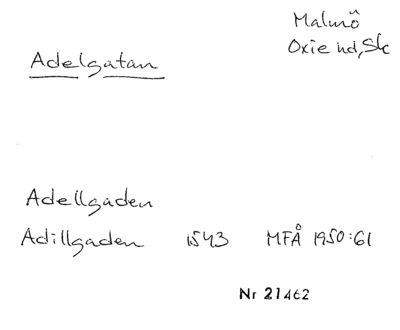 Malmö
Oxie hd, Sk
Adelgatan
Adellgaden
Adillgaden 1543 MFÅ 1950:61
Nr 21462